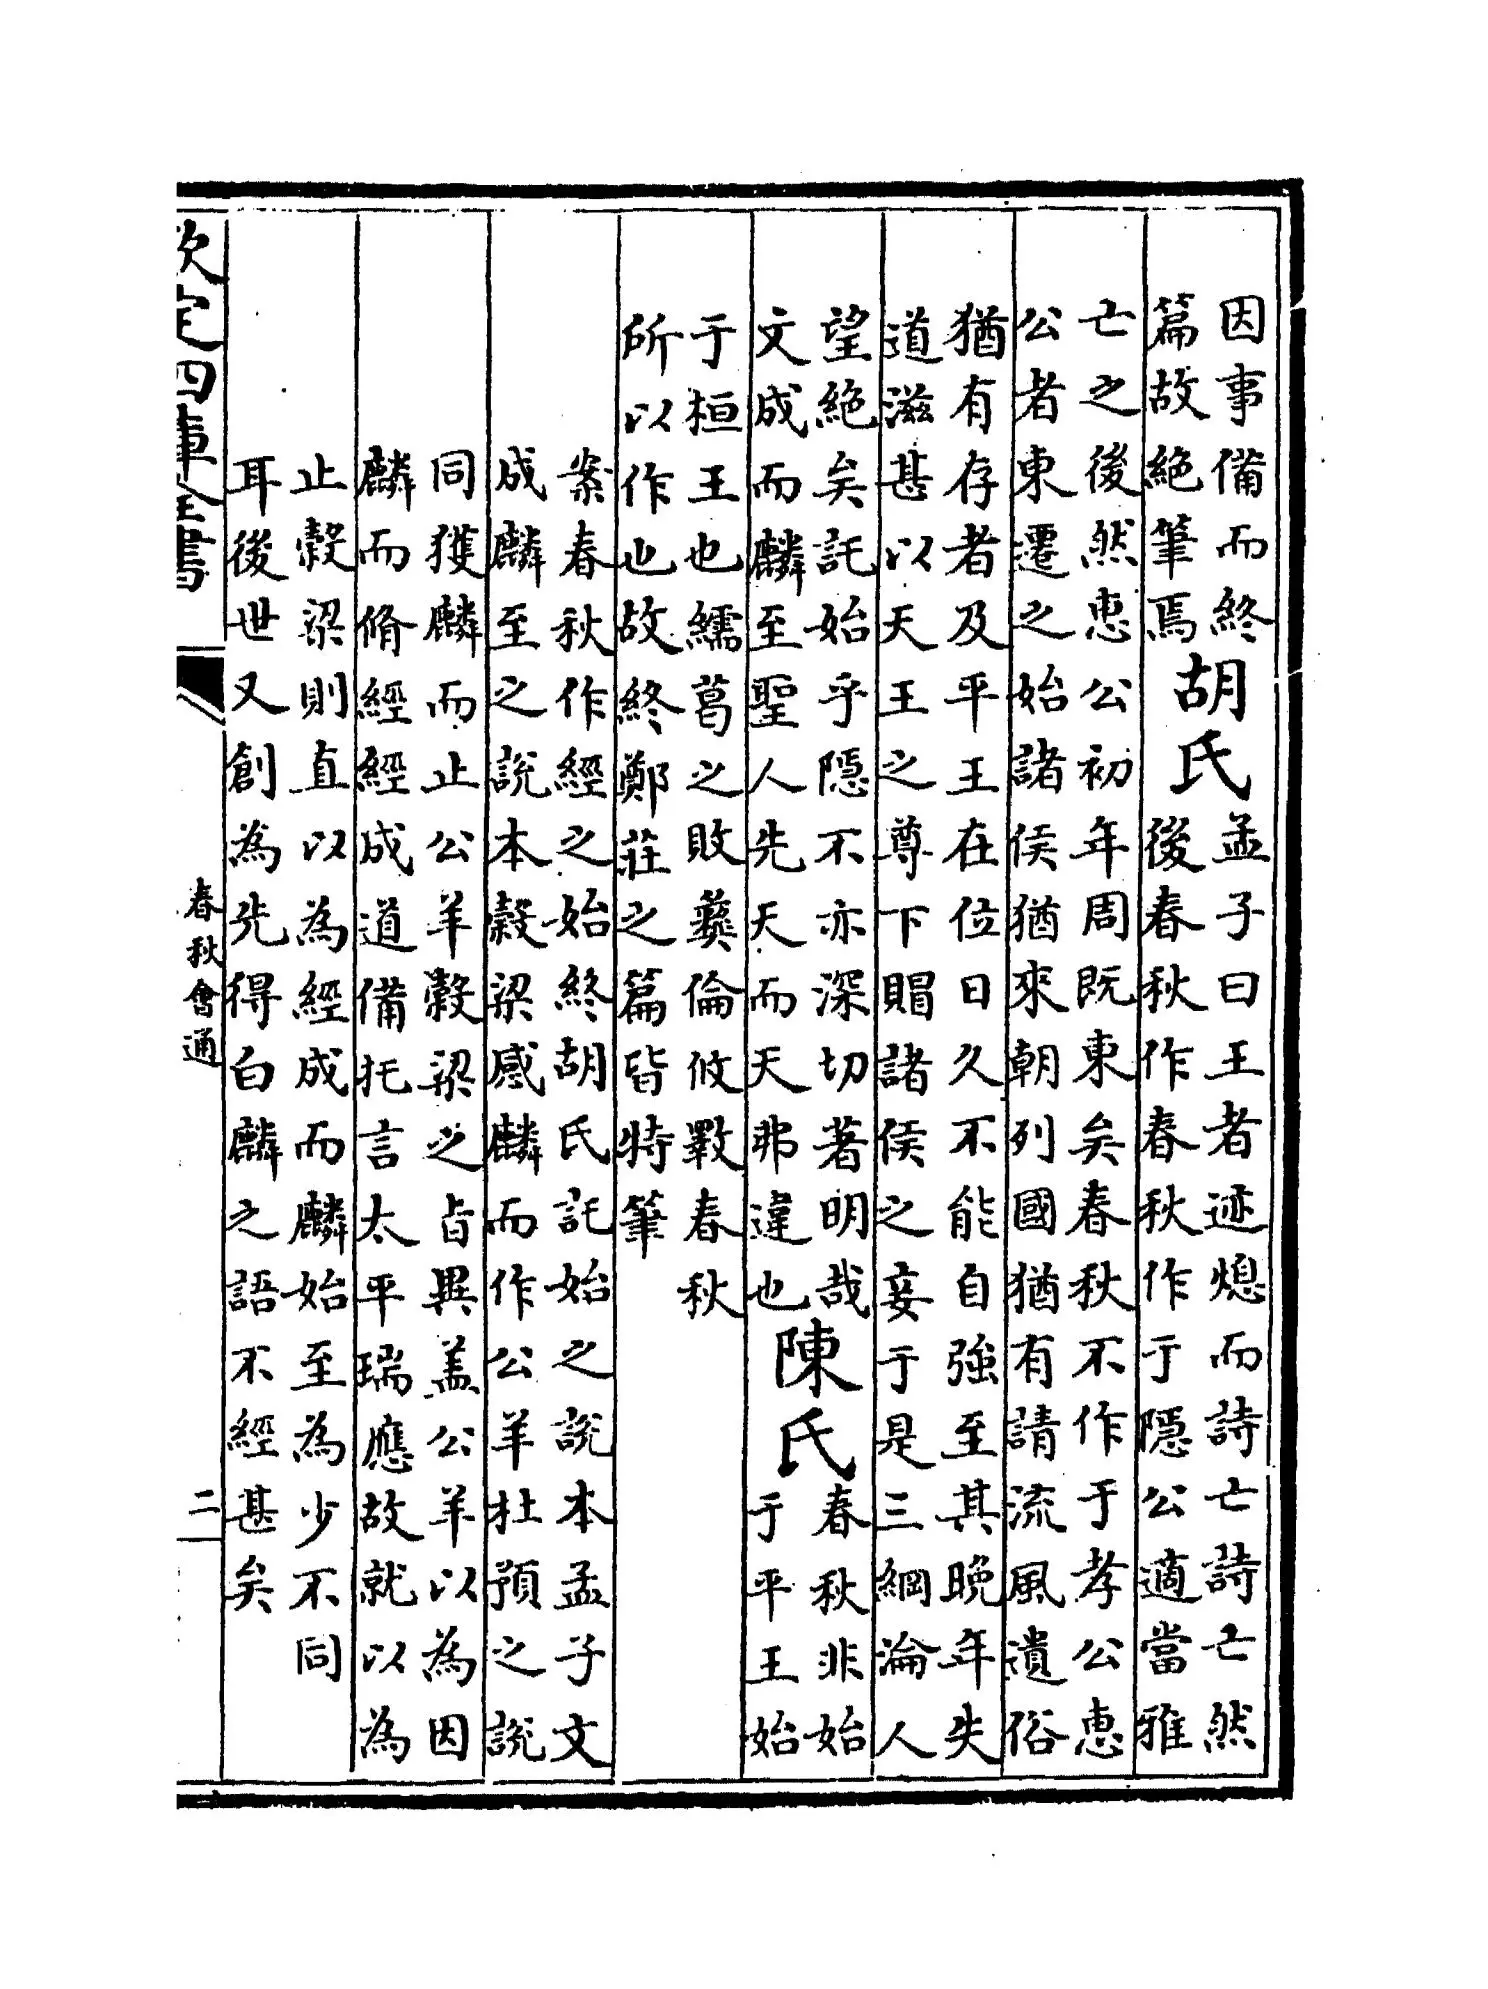 因事備而終
篇故絶筆焉
胡氏
孟子曰王者迹熄而詩亡詩亡然
後春秋作春秋作于隱公適當雅
亡之後然惠公初年周既東矣春秋不作于孝公惠
公者東遷之始諸侯猶來朝列國猶有請流風遺俗
猶有存者及平王在位日久不能自強至其晚年失
道滋甚以天王之尊下賵諸侯之妾于是三綱淪人
望絶矣託始乎隱不亦深切著明哉
文成而麟至聖人先天而天弗違也
陳氏
春秋非始
于平王始
于桓王也繻葛之敗彜倫攸斁春秋
所以作也故終鄭莊之篇皆特筆
案春秋作經之始終胡氏託始之説本孟子文
成麟至之説本穀梁感麟而作公羊杜預之説
同獲麟而止公羊穀梁之㫖異盖公羊以為因
麟而脩經經成道備托言太平瑞應故就以為
止穀梁則直以為經成而麟始至為少不同
耳後世又創為先得白麟之語不經甚矣
欽定四庫全書
春秋會通
二